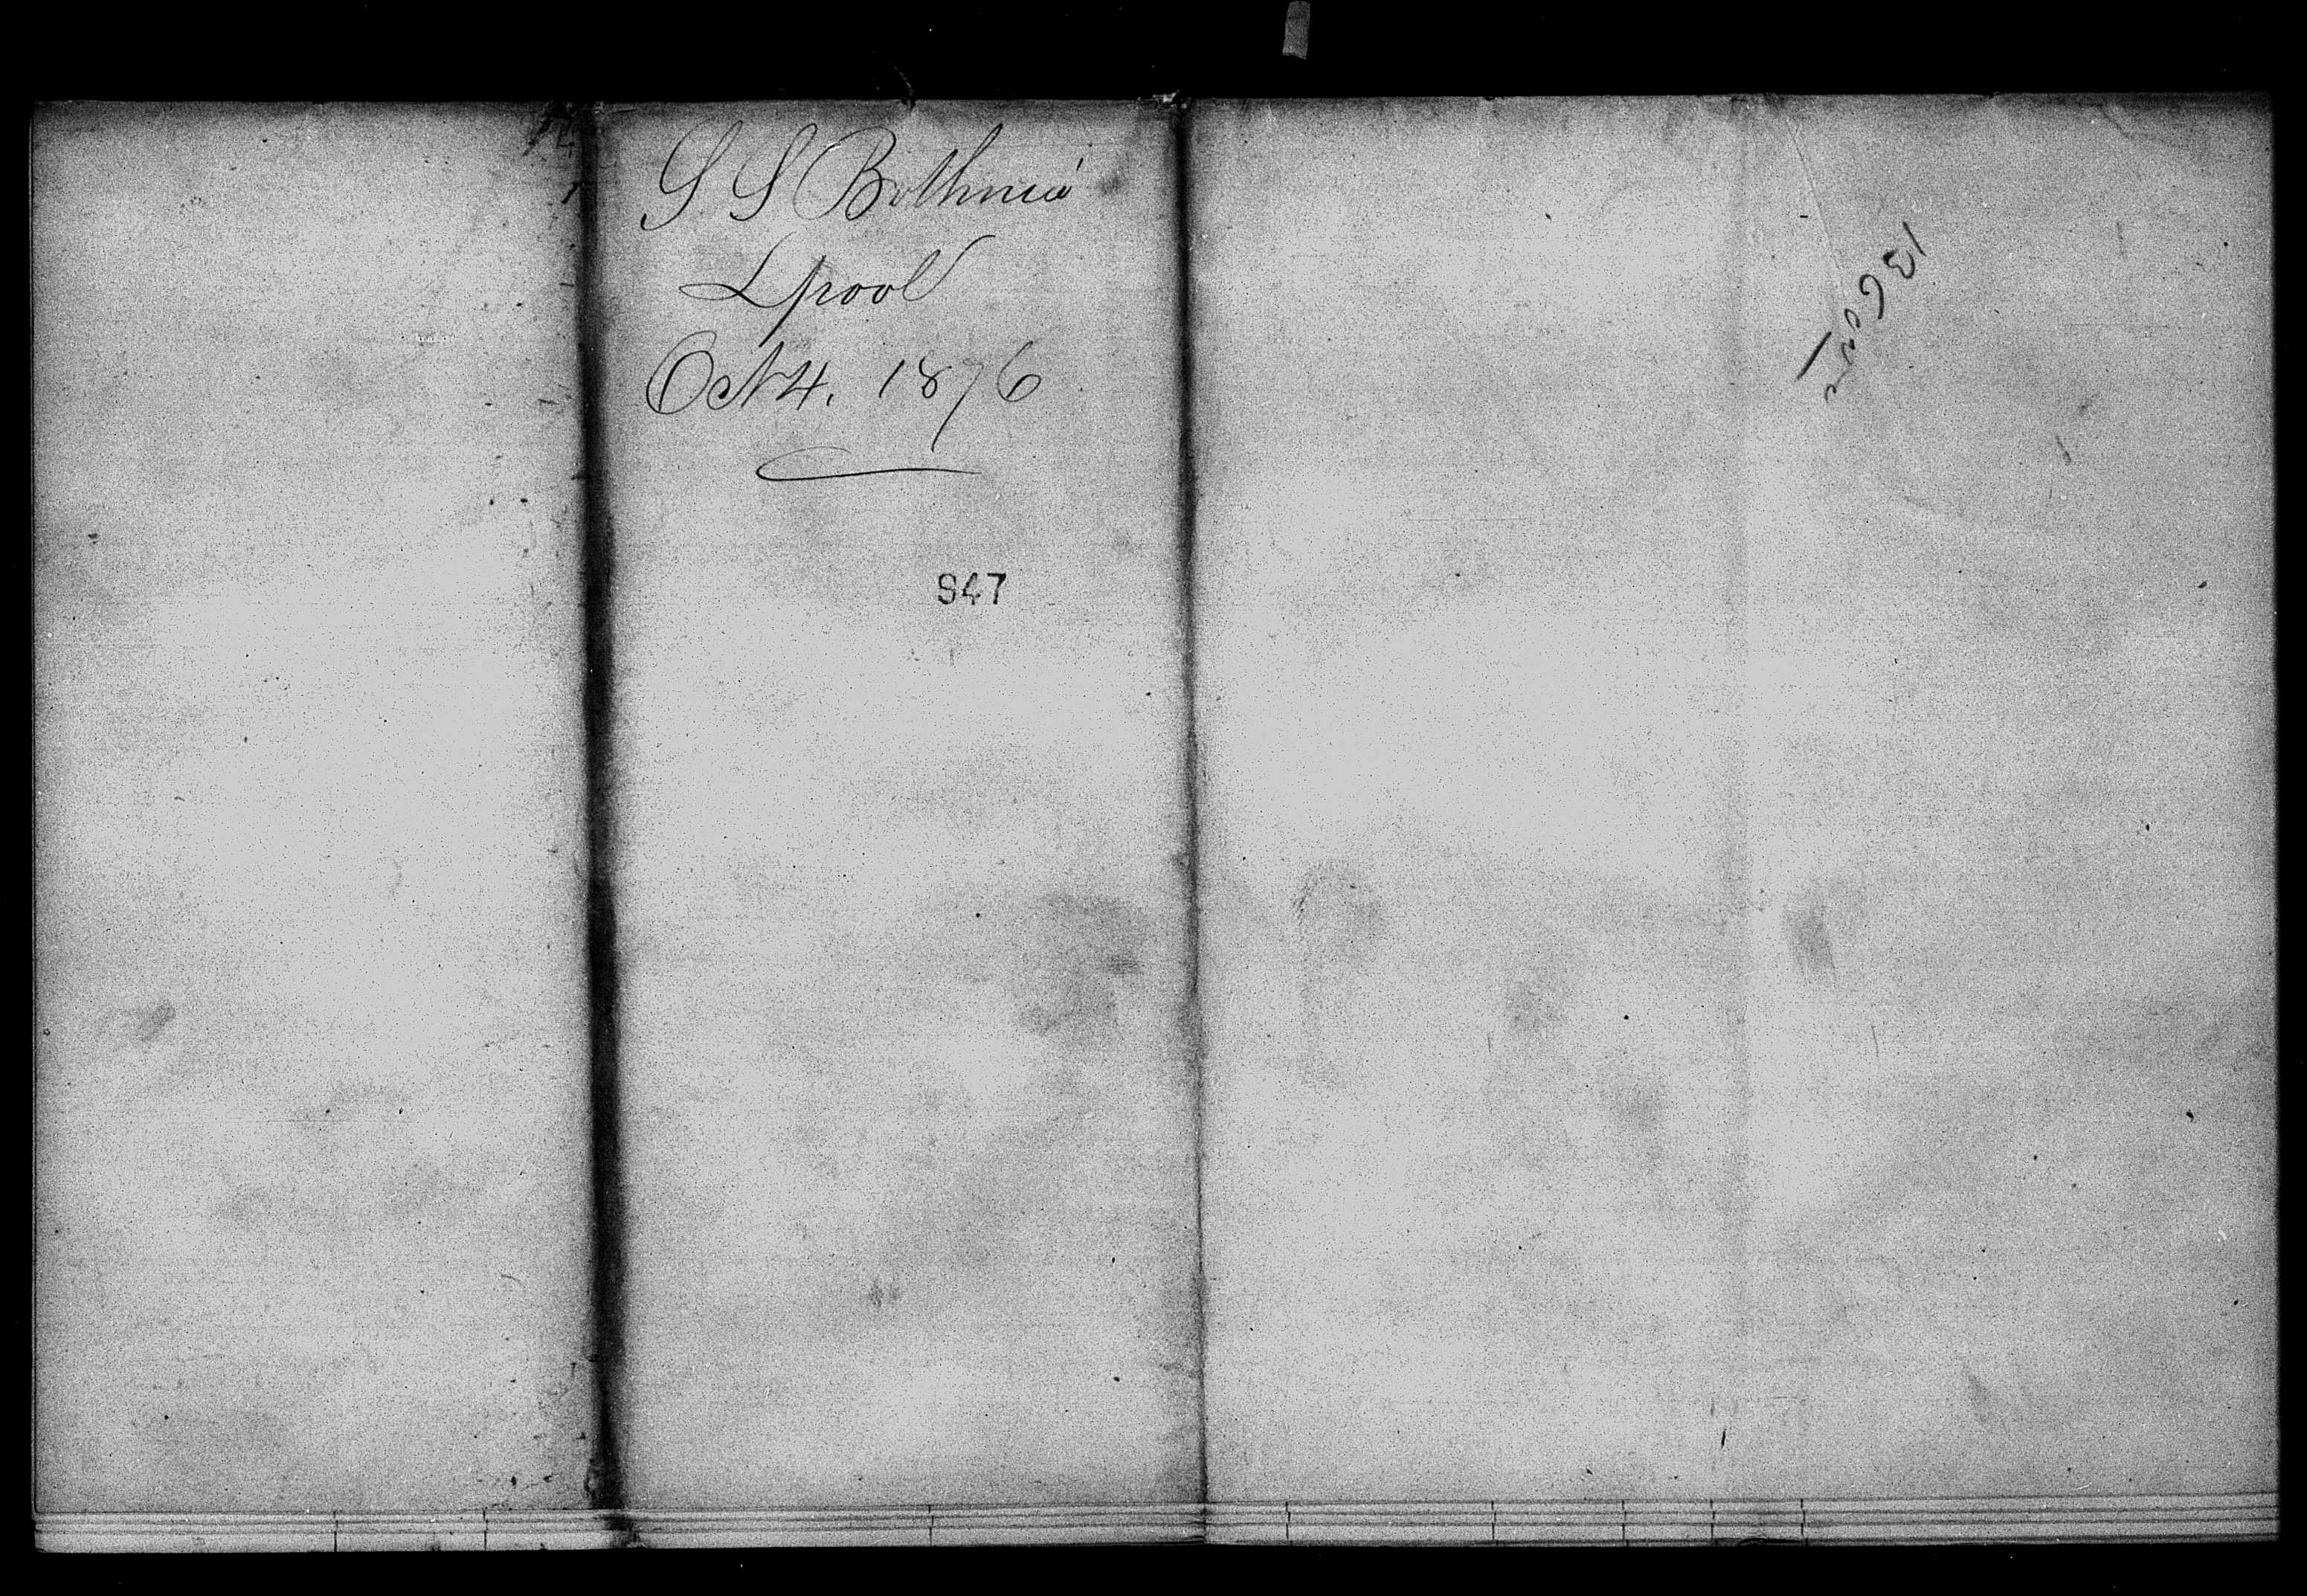 S S Bothnia
Lpool
Oct 4. 1876
947